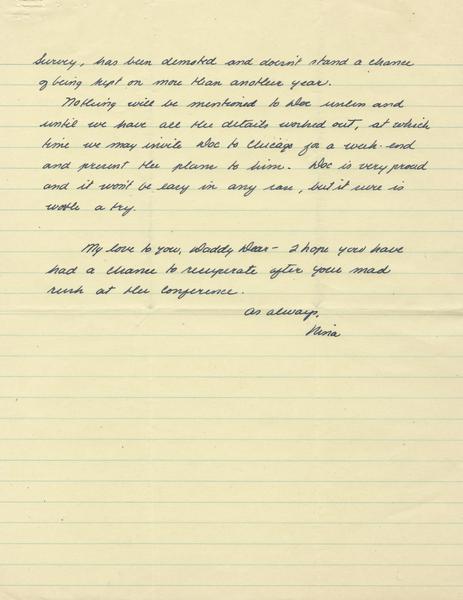 Survey, has been demoted and doesn't stand a chance
of being kept on more than another year.
Nothing will be mentioned to Doc unless and
until we have all the details worked out, at which
time we may invite Doc to Chicago for a week-end
and present the plans to him. Doc is very proud
and it won't be easy in any case, but it sure is
worth a try.
My love to you, Daddy Dear - I hope you have
had a chance to recuperate after your mad
rush at the conference.
As always,
Nina